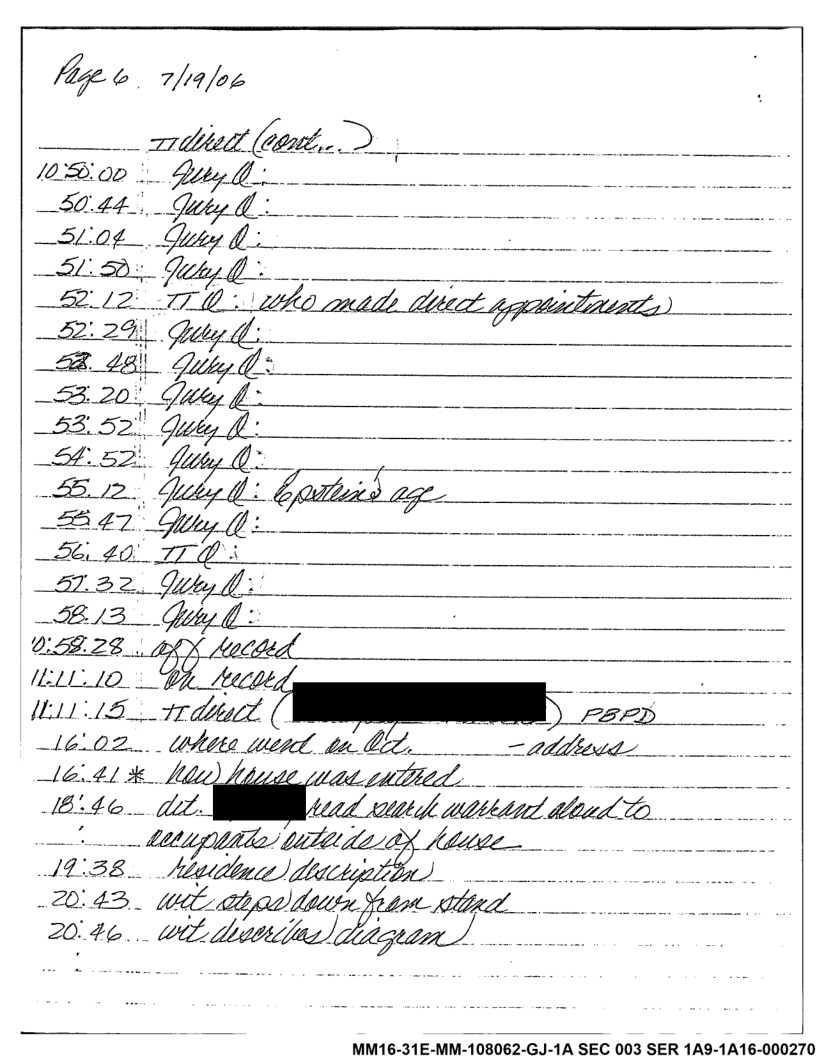 Page 6 7/19/06
π direct (cont...)
10:50:00 Jury Q:
50:44 Jury Q:
51:04 Jury Q:
51:50 Jury Q:
52:12 π Q: who made direct appointments
52:29 Jury Q:
52:48 Jury Q:
53:20 Jury Q:
53:52 Jury Q:
54:52 Jury Q:
55:12 Jury Q: Epstein's age
55:47 Jury Q:
56:40 π Q:
57:32 Jury Q:
58:13 Jury Q:
10:58:28 off record
11:11:10 on record
11:11:15 π direct ( ) PBPD
16:02 where went on Oct. - address
16:41 * how house was entered
18:46 det. read search warrant aloud to
occupants outside of house
19:38 residence description
20:43 wit steps down from stand
20:46 wit describes diagram
MM16-31E-MM-108062-GJ-1A SEC 003 SER 1A9-1A16-000270